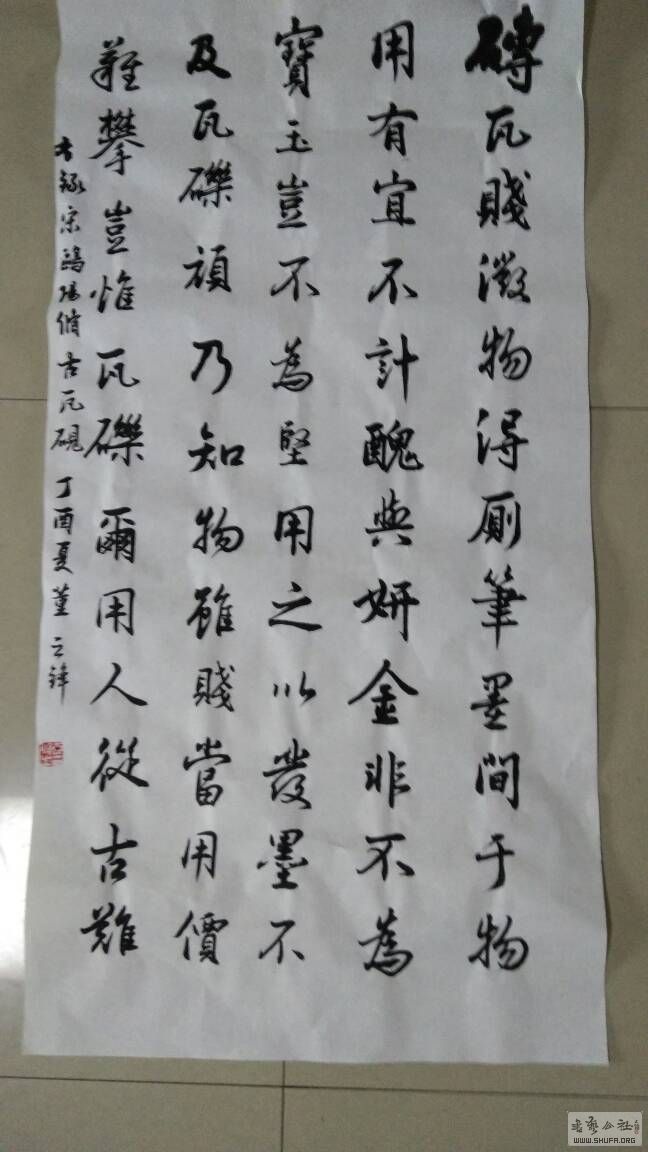 磚瓦賤微物得厠筆墨間于物
用有宜不計醜與妍金非不為
寶玉豈不為堅用之以發墨不
及瓦礫頑乃知物雖賤當用價
難攀豈惟瓦礫爾用人從古難
古瓦硯 丁酉夏董之鋒
WWW.SHUFA.ORG